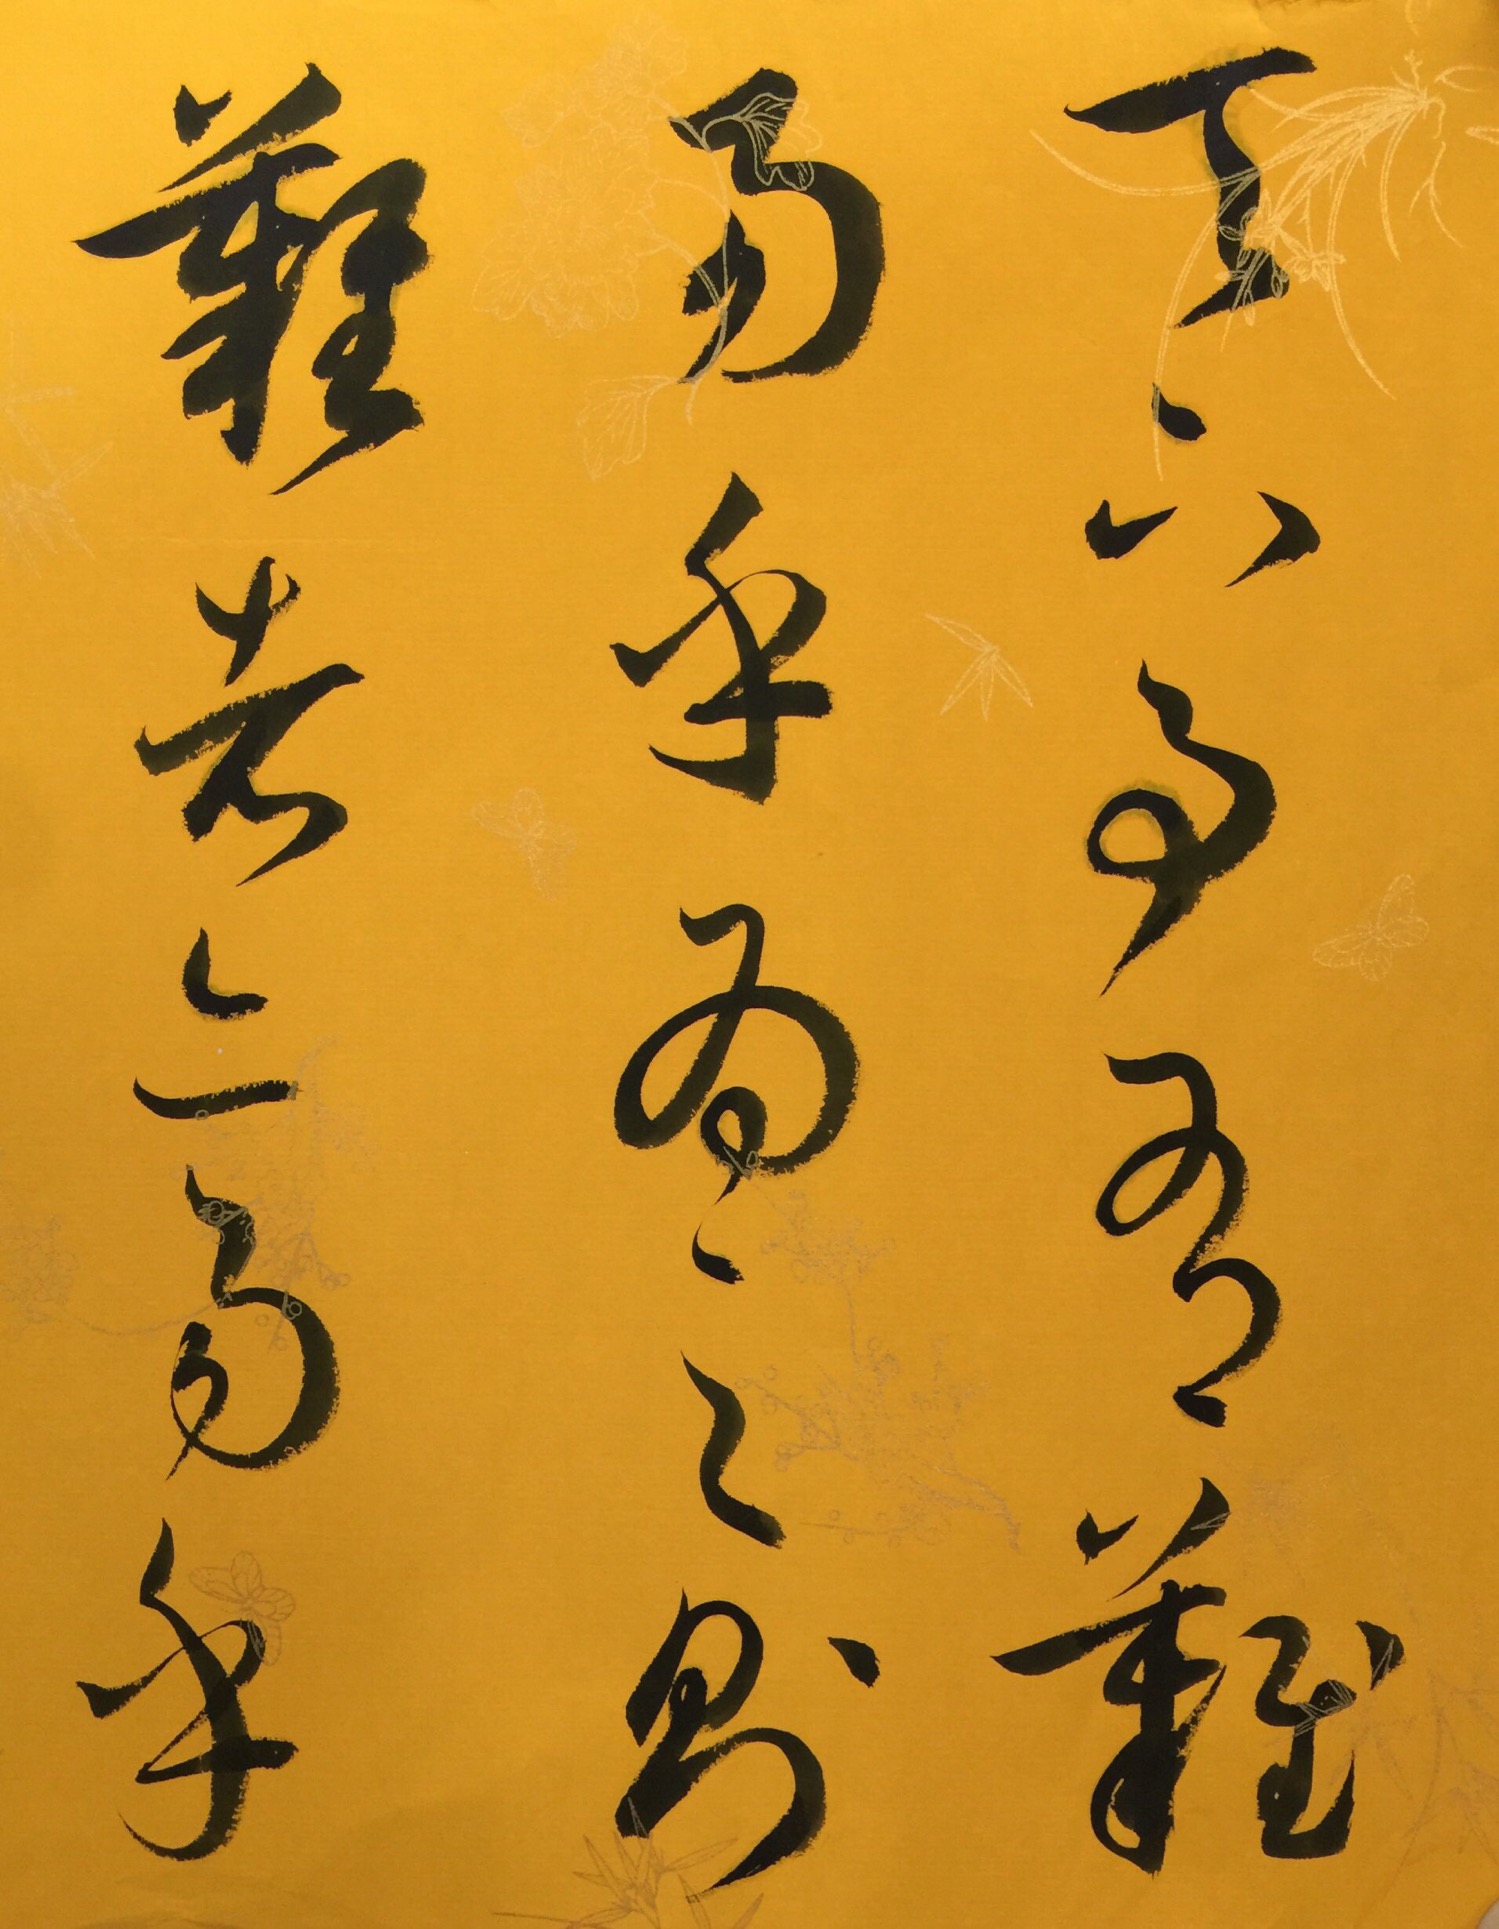 天下事有難
易乎為之則
難者亦易乎